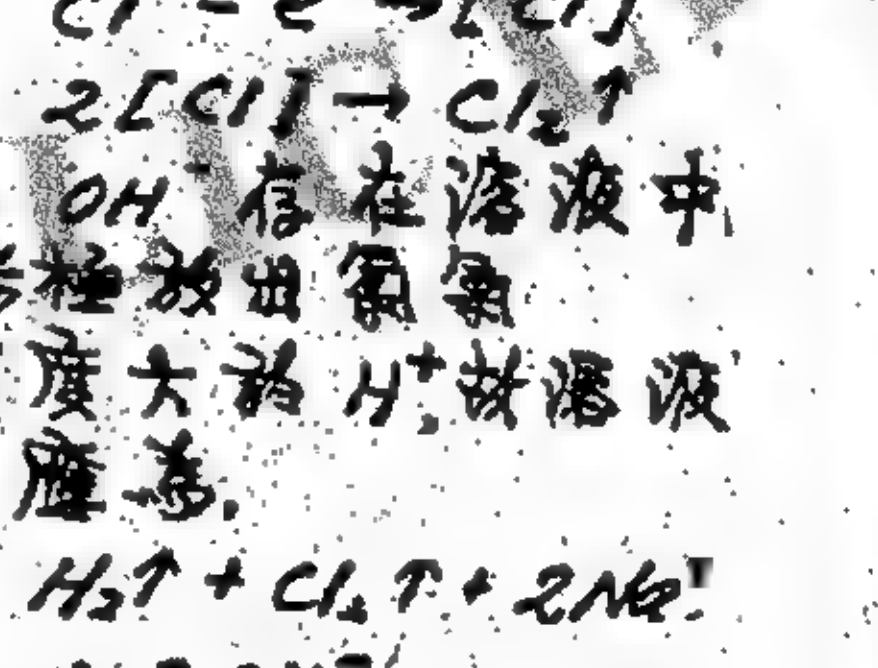 Cl⁻ - e → [Cl]
2[Cl] → Cl₂↑
OH⁻ 存在溶液中,
極放出氯氣
度大於 H⁺, 故溶液
應為
H₂↑ + Cl₂↑ + 2Na⁺